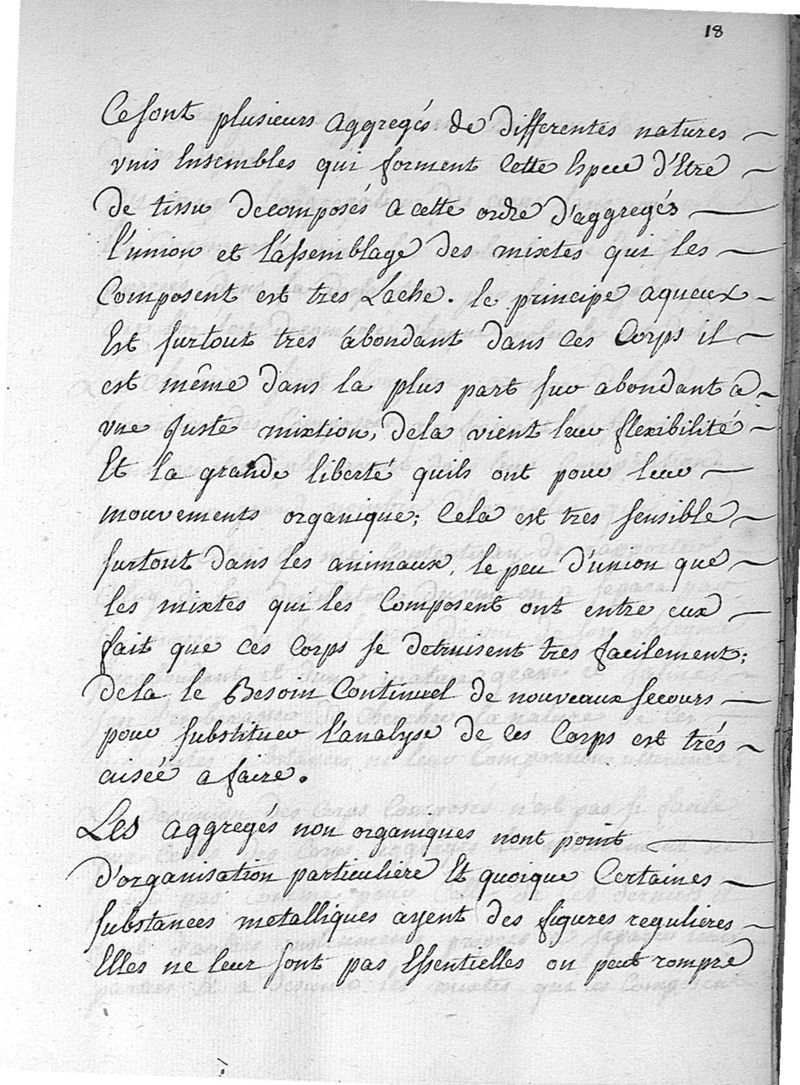 18
Ce sont plusieurs aggregés de differentes natures
unis Ensembles qui forment Cette Espece d'Etre
de tissu decomposés a cette ordre d'aggregés
l'union et l'assemblage des mixtes qui les
Composent est tres Lache. le principe aqueux
Est surtout tres abondant dans ces Corps il
est même dans la plus part sur abondant a
une Juste mixtion, dela vient leur flexibilité
Et la grande liberté quils ont pour leur
mouvements organique; Cela est tres sensible
surtout dans les animaux, le peu d'union que
les mixtes qui les Composent ont entre eux
fait que ces Corps se detruisent tres facilement;
dela le Besoin Continuel de nouveaux secours
pour substituer l'analyse de ces Corps est trés
aiseé a faire.
Les aggregés non organiques nont point
d'organisation particuliere Et quoique Certaines
substances metalliques ayent des figures regulieres
Elles ne leur sont pas Essentielles on peut rompre